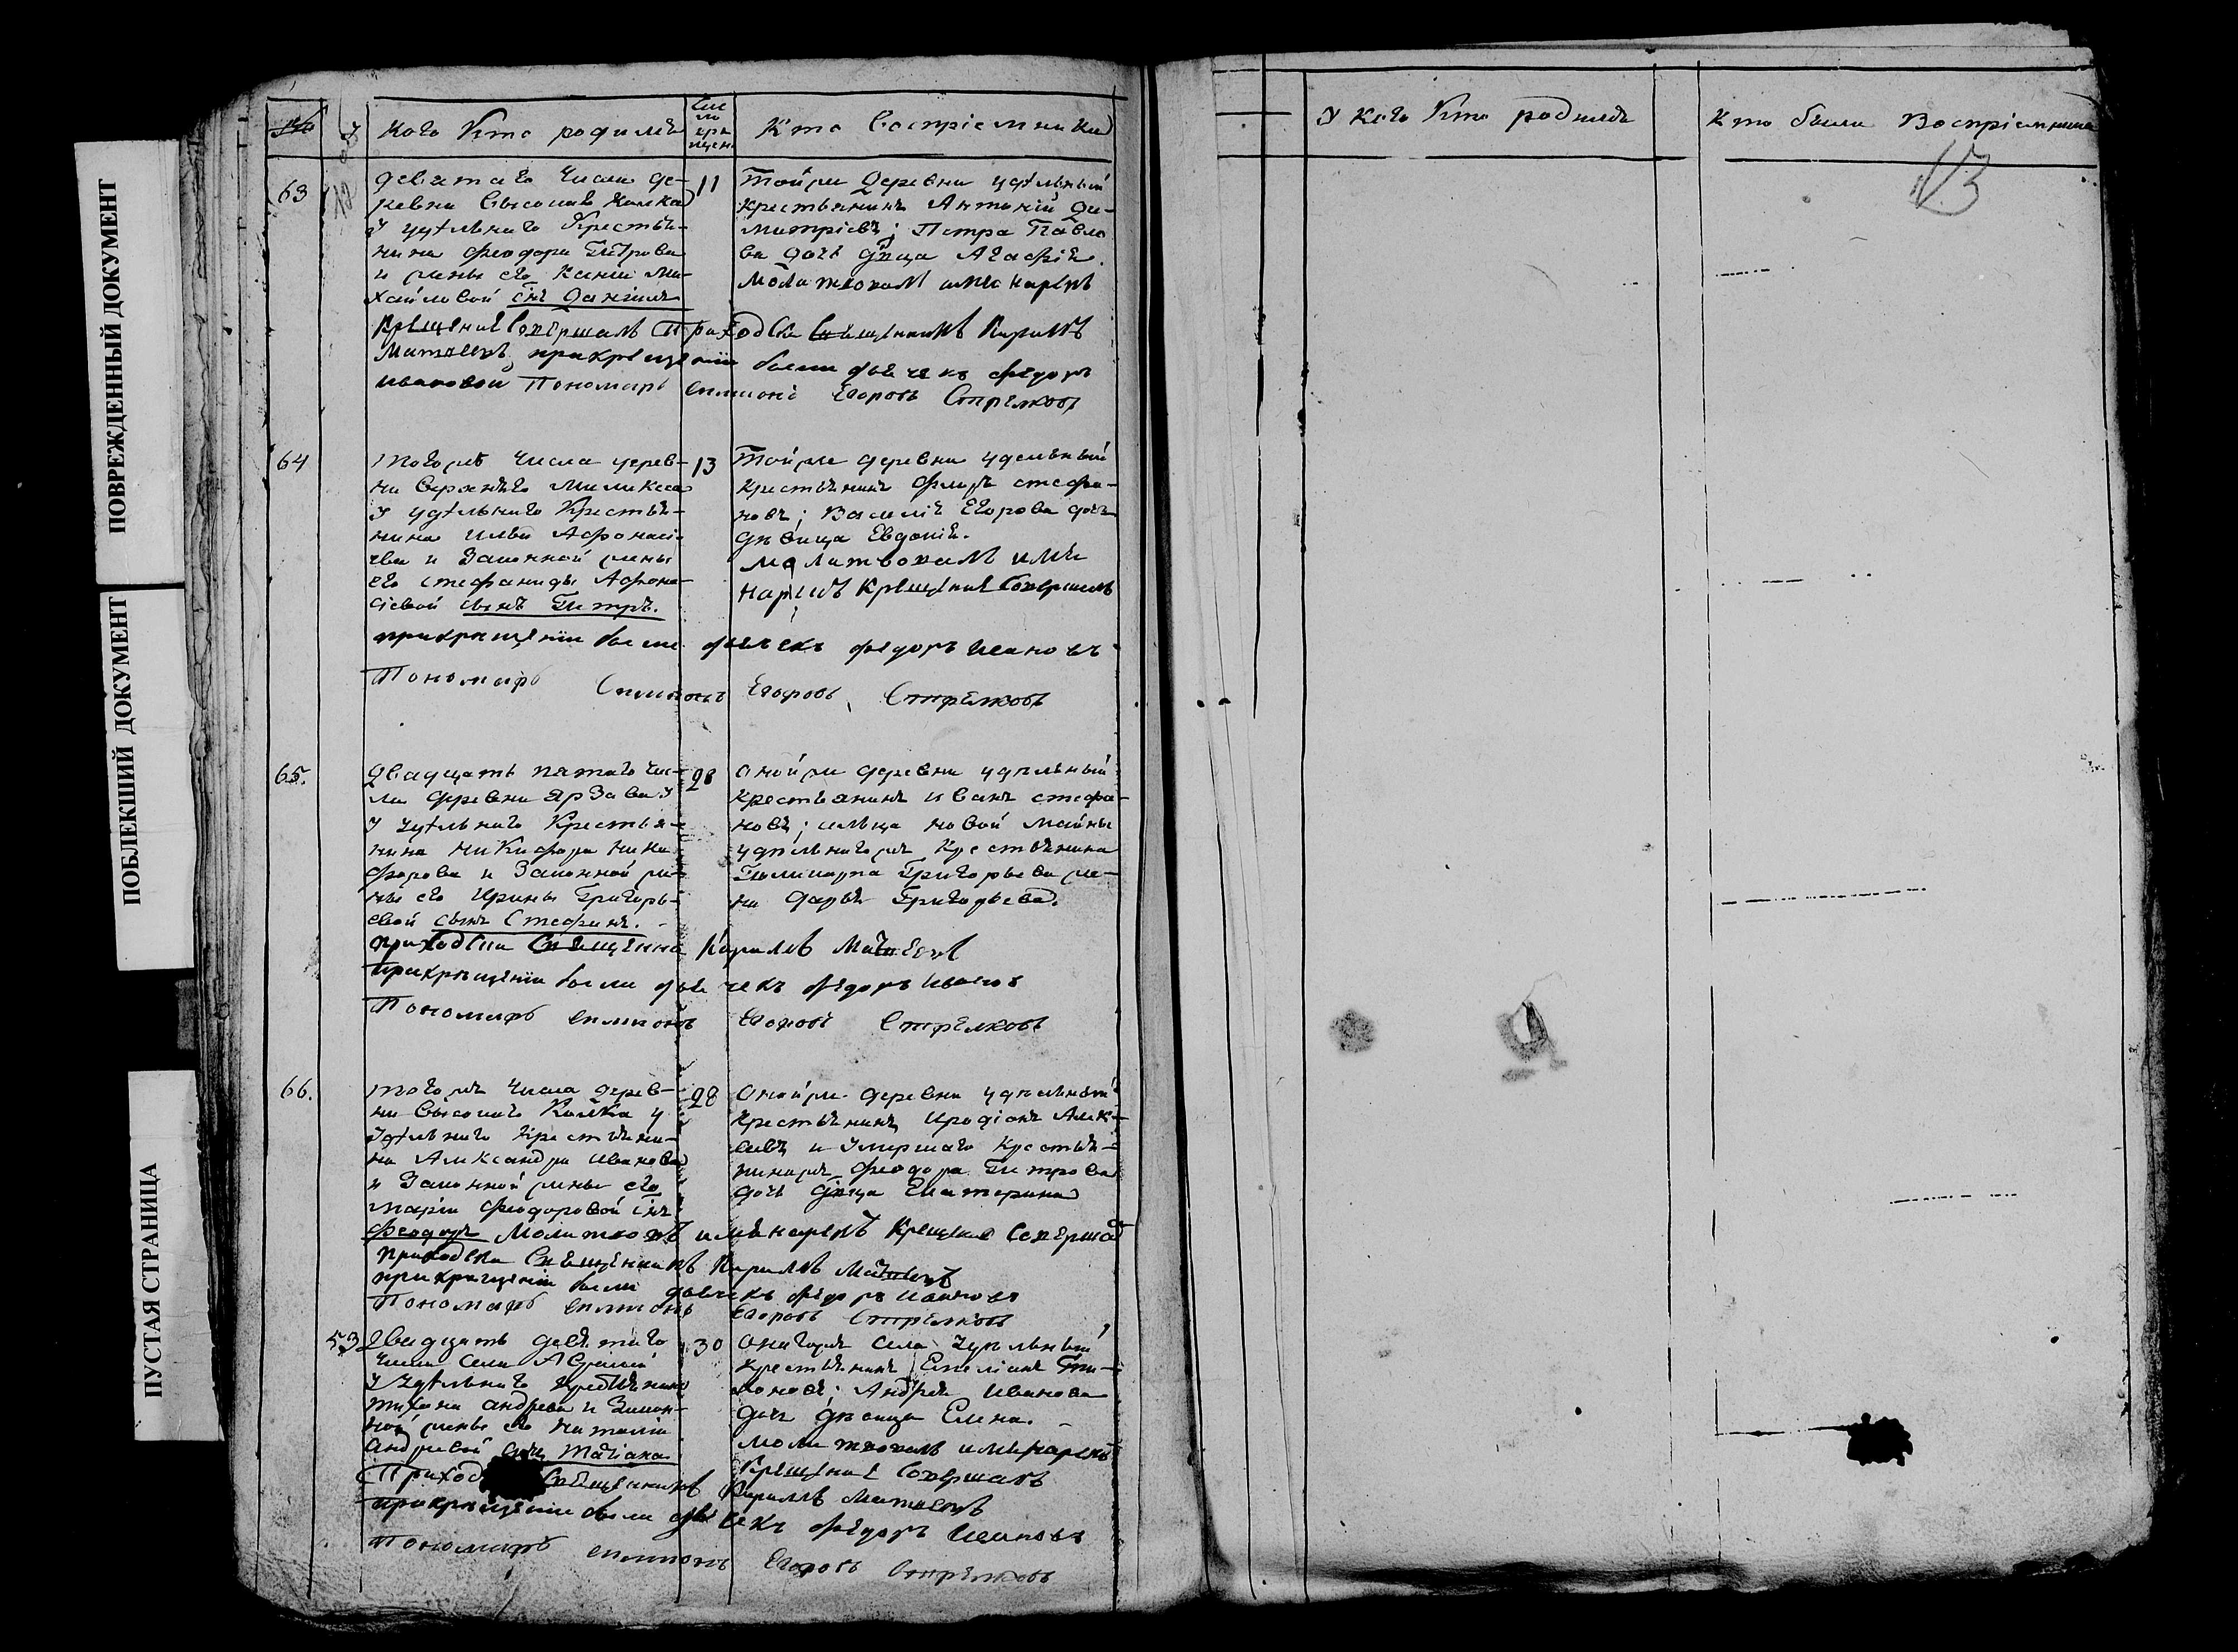 ПОВРЕЖДЕННЫЙ ДОКУМЕНТ
ПОБЛЕКШИЙ ДОКУМЕНТ
ПУСТАЯ СТРАНИЦА
У Кого Кто родилъ
Кто Воспріемники
63
девятаго числа де-
ревни Высокаго Колка
У удѣльнаго Крестья-
нина Феодора Петрова
и жены его Ксеніи Ми-
хайловой снъ Даніилъ
11
Тойже деревни удѣльный
крестьянинъ Антоній Ди-
митріевъ; Петра Павло
ва дочь двица Агафія.
Молитвовалъ имя нарекъ
Крещеніе Совершалъ Приходски Священникъ Кирилъ
Матвеевъ, при крещеніи были дьячекъ Федоръ
Ивановъ Пономарь Симионъ Егоровъ Стрелковъ
64
тогожъ числа дерев-
ни Верхняго Мелекеса
У удѣльнаго Крестья-
нина Ильи Афонасі-
ева и Законной жены
его Стефаниды Афона-
сіевой сынъ Петръ.
13
Тойже деревни удельный
крестьянинъ Флоръ Стефа-
новъ; Василія Егорова дочь
дѣвица Евдокія.
молитвовалъ имя
нарекъ Крещеніе Совершалъ
при крещеніи были дьячекъ Федоръ Ивановъ
Пономарь Симионъ Егоровъ Стрелковъ
65.
Двадцать пятаго чис-
ла деревни
У удѣльнаго Крестья-
нина Никифора Ники-
форова и Законной же-
ны его Ирины Григорь-
евой сынъ Стефанъ.
28
Онойже деревни удѣльный
крестьянинъ Иванъ Стефа-
новъ; сельца Новой Майны
удѣльнагожъ Крестьянина
Поликарпа Григорьева же-
на Дарья Григорьева.
приходски Священнк Кирилъ Матвеевъ
при крещеніи были дьячекъ Федоръ Ивановъ
Пономарь Симионъ Егоровъ Стрелковъ
66.
тогожъ числа дерев-
ни Высокаго Колка у
Удѣльнаго Крестьяни-
на Александра Иванова
и Законной жены его
Маріи Феодоровой снъ
Феодоръ
28
Онойже деревни удѣльный
крестьянинъ Иродіонъ Алек-
сѣевъ и Умершаго Крестья-
нинажъ Феодора Петрова
дочь двица Екатерина
Молитвовалъ имя нарекъ Крещеніе Соверша
приходски Священникъ Кирилъ Матвеевъ
при крещеніи были дьячекъ Федоръ Ивановъ
Пономарь Симионъ Егоровъ Стрелковъ
53
Двадцать девятаго
числа Села
У удѣльнаго Крестьянина
Тихона Андреева и Закон-
ной жены его Наталіи
Андреевой дочь Татіана
30
Онагожъ Села Удѣльный
крестьянинъ Емеліанъ Ти-
хоновъ; Андрея Иванова
дочь дѣвица Елена.
молитвовалъ имя нарекъ
Крещеніе Совершалъ
Приход Священникъ Кирилъ Матвеевъ
при крещеніи были дьячекъ Федоръ Ивановъ
Пономарь Симионъ Егоровъ Стрелковъ
У Кого Кто родилъ
Кто были Воспріемники
13